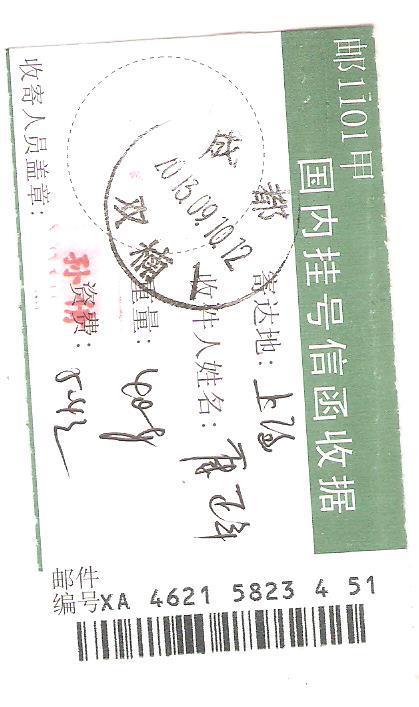 邮1101甲
国内挂号信函收据
寄达地：上海
收件人姓名：
重量：
资费：
收寄人员盖章：
成都
2013.09.10.12
双楠
邮件
编号XA 4621 5823 4 51